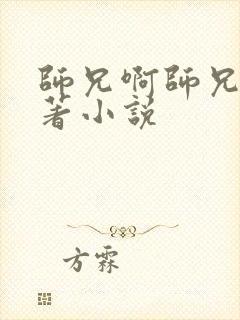 師兄啊師兄
著小說
方霖